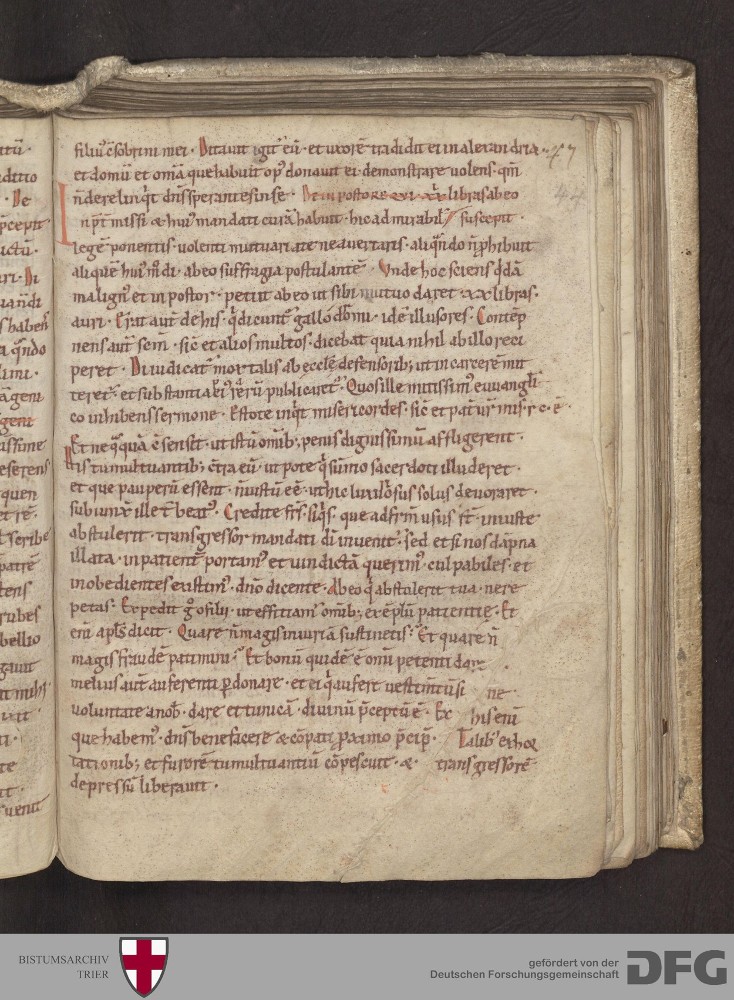 filiuſ c̄ſobrini mei · Ditauit igit᷑ eū · et uxorē tradidit ei in alexandria · 47
et domū et om̄a que habuit opꝰ donauit ei · demonſtrare volens · qm̄ 47
n̄ derelinqͥt dn̄s ſperantes in ſe · De inpoſtore qui xx libras ab eo
In p̄t miſſi & huiꝰ mandati curā habuit · hic admirabilis ſuscepit ·
legē ponentis · volenti mutuari a te ne auertaris · aliqn̄do n̄ phibuit
aliquē huiꝰ m̄di · ab eo ſuffragia poſtulantē · Vnde hoc ſciens qͥdā
malignꝰ et inpoſtor · petiit ab eo ut ſibi mutuo daret · xx · libras ·
auri · Erat aut̄ de his · qͥ dicunt᷑ gallodromi · id ē illuſores · Contēp
nens aut̄ ſcm̄ · ſic̄ et alios multos · dicebat quia nihil ab illo reci
peret · Diiudicat᷑ mortalis ab eccl̄e defenſorib; ut in carcerē mit
teret᷑ · et ſubſtantia ei᷑ rerū publicaret᷑ · Quos ille mitiſſimꝰ euuangli
co inhibens ſermone · Eſtote inqͥt miſericordes · ſic̄ et pat᷑ ur̄ mis · r · c · ē ·
Et neqͣquā c̄ſenſit · ut iſtū om̄ib; penis digniſſimū affligerent ·
His tumultuantib; c̄tra eū · ut pote qͥ ſūmo ſacerdoti illuderet ·
et que pauperū eſſent · n̄ iuſtū eē · ut hic luxurioſus ſolus deuoraret ·
ſubiunx̄ ille t̄ beatꝰ · Credite fr̄s · ſi qͥs · que ad frm̄ uſus ſt̄ · iniuſte
abſtulerit · tranſgreſſor mandati dī inuenit᷑ · ſed et ſi nos dāpna
illata · inpatient᷑ portamꝰ et uindictā querimꝰ · culpabiles · et
inobedientes exiſtimꝰ · dn̄o dicente · Ab eo qͥ abſtulerit tua · ne re
petas · Expedit gͦ o filii · ut efficiam᷑ om̄ib; exēplū patientie · Et
eni᷑ apl̄s dicit · Quare n̄ magis iniuriā ſuſtinetis · Et quare n̄
magis fraudē patimini · Et bonū quidē ē om̄i petenti dare ·
melius aut̄ auferenti ꝑdonare · et ei qͥ aufert veſtim̄tū ſi ne ·
voluntate a nob̄ · dare et tunicā · diuinū p̄ceptū ē · Ex his enī
que habemꝰ · dn̄s benefacere & cōpati ꝓximo p̄cip̄ · Talib᷑ exhor
tationib; et furorē tumultuantiū cōpeſcuit · & · tranſgreſſorē
depreſſū liberauit ·
BISTUMSARCHIV
TRIER
gefördert von der
Deutschen Forschungsgemeinschaft
DFG